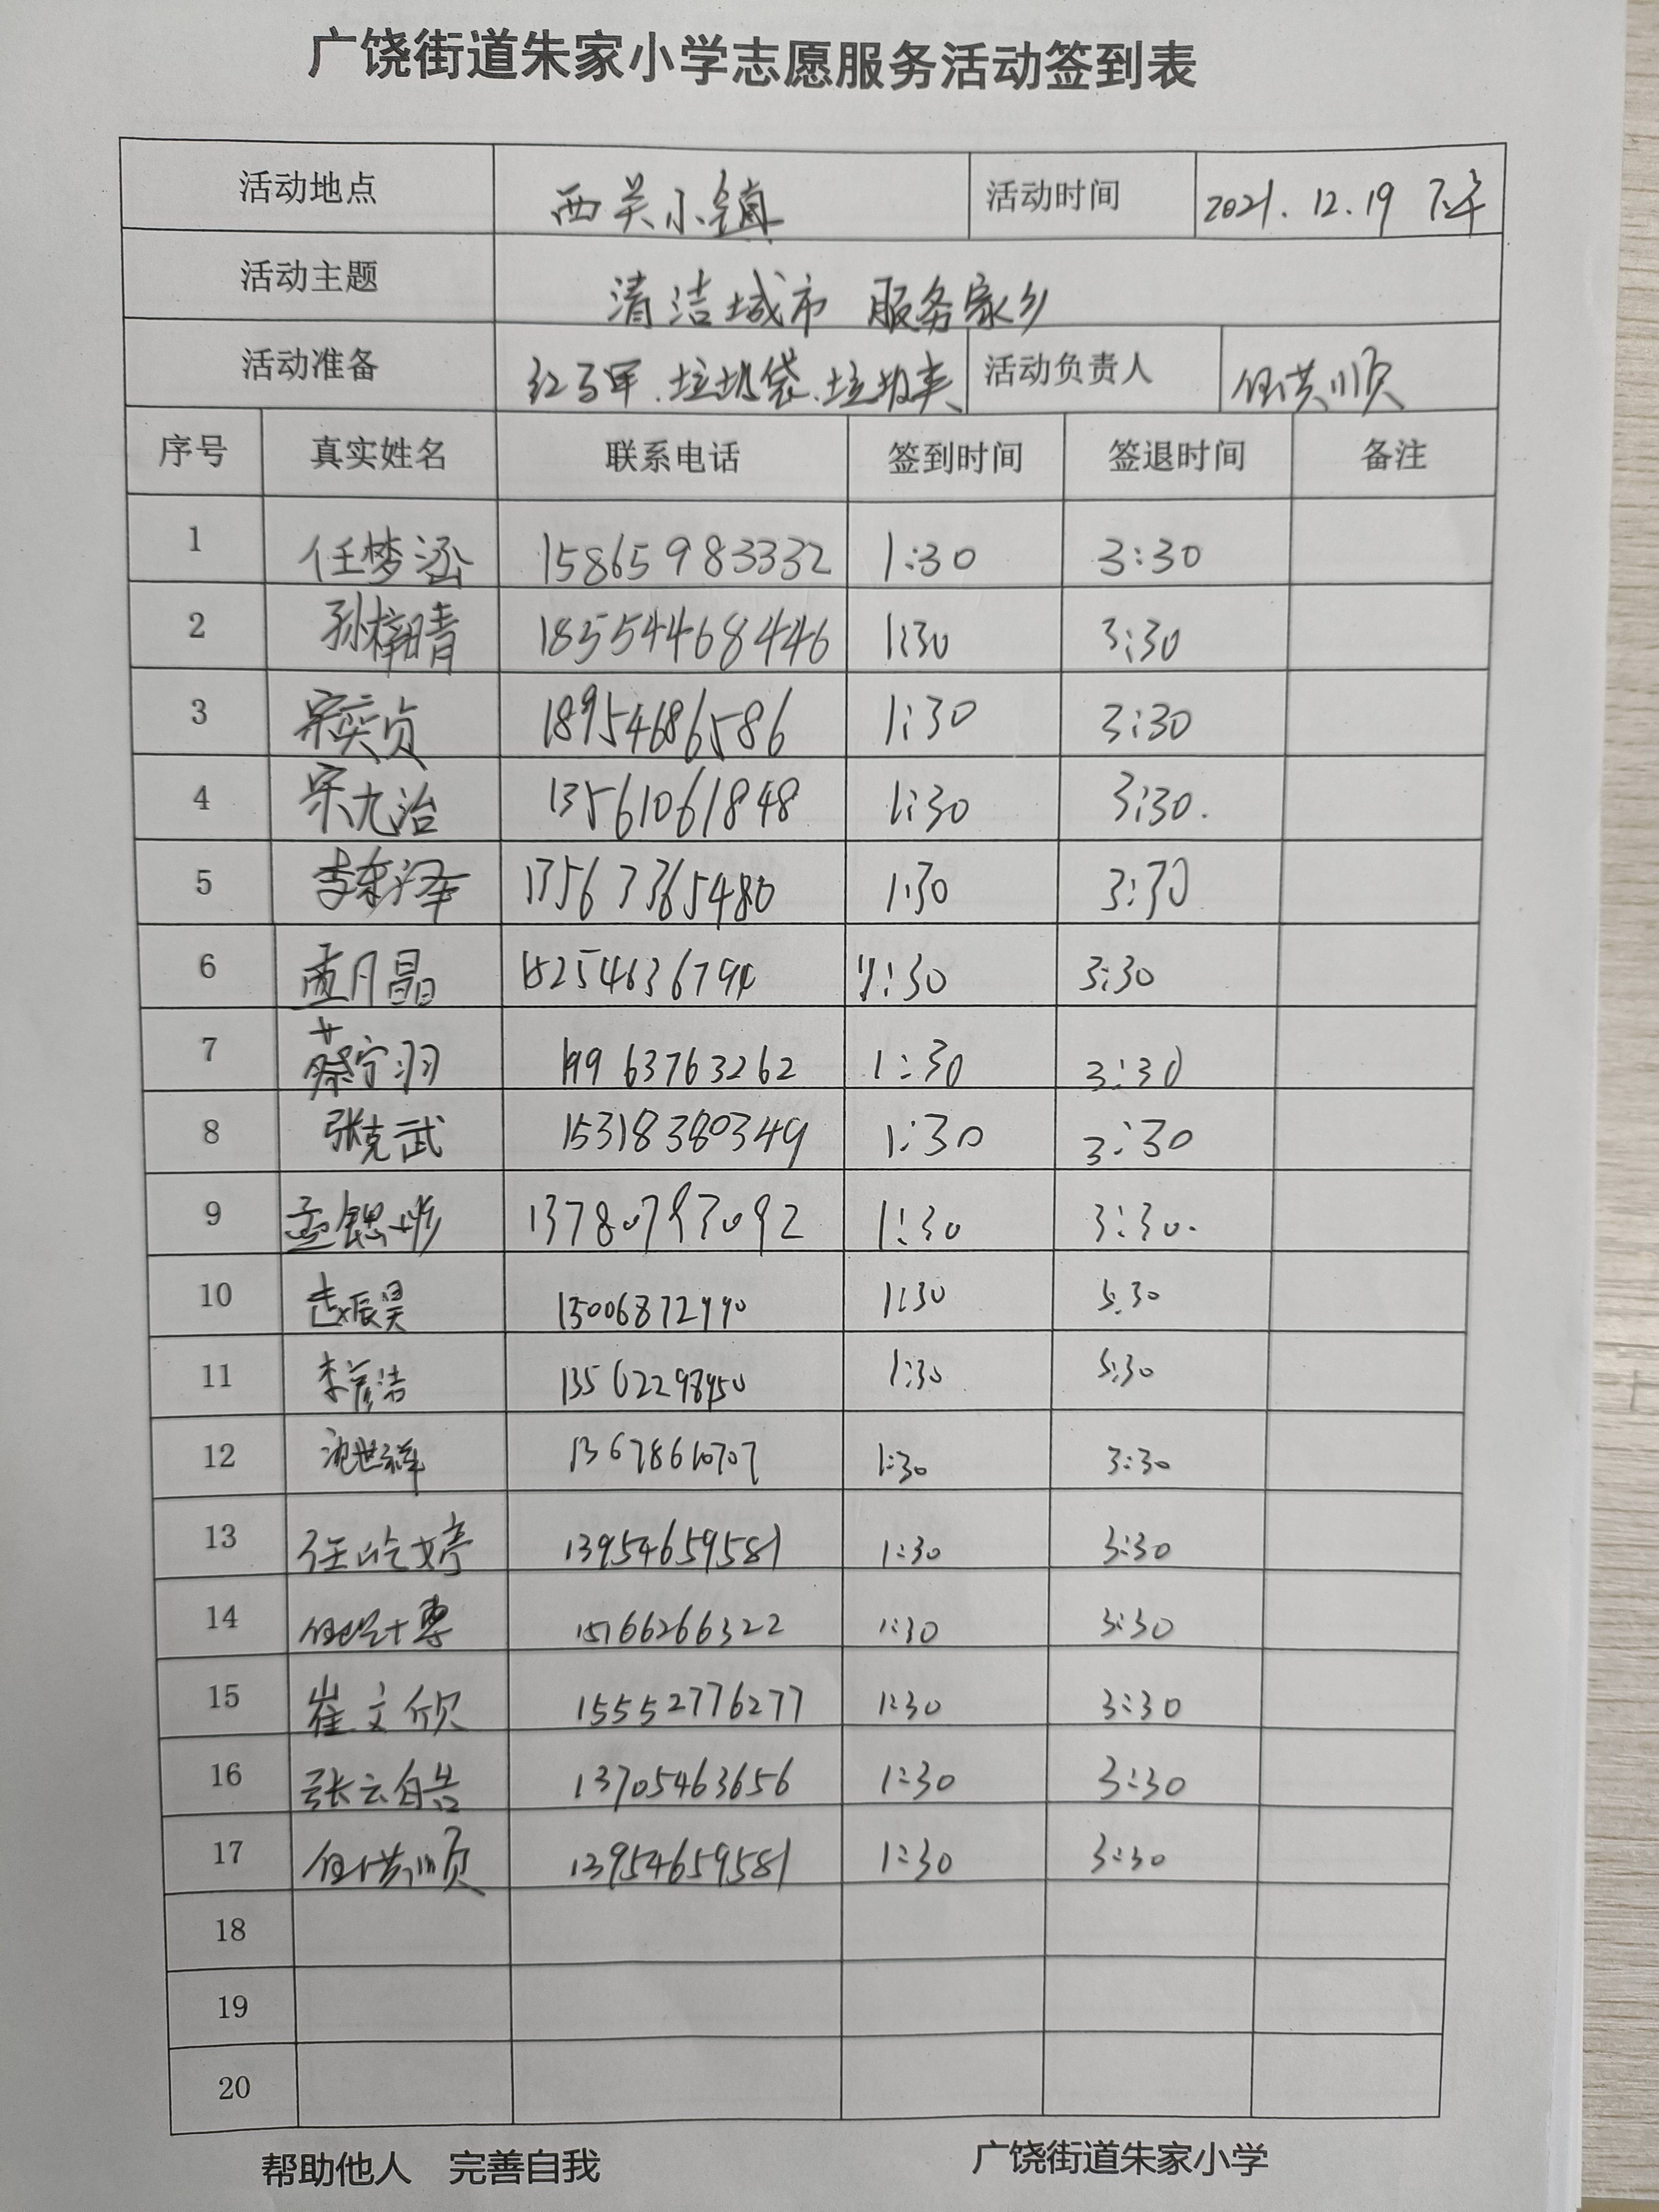 广饶街道朱家小学志愿服务活动签到表
活动地点 西关小镇 活动时间 2021.12.19 下午
活动主题 清洁城市 服务家乡
活动准备 红马甲、垃圾袋、垃圾夹 活动负责人 任洪顺
序号 真实姓名 联系电话 签到时间 签退时间 备注
1 任梦涵 15865983332 1:30 3:30
2 孙梓晴 18554468446 1:30 3:30
3 宋奕贞 18954686586 1:30 3:30
4 宋九治 13561061848 1:30 3:30.
5 李东泽 13563365480 1:30 3:30
6 月晶 1:30 3:30
7 蔡宁羽 19963763262 1:30 3:30
8 张克武 15318380349 1:30 3:30
9 孟 13780793092 1:30 3:30.
10 赵振昊 1:30 3:30
11 李彦洁 1:30 3:30
12 沈世祥 1:30 3:30
13 任 婷 13954659581 1:30 3:30
14 任 15166266322 1:30 3:30
15 崔文欣 15552776277 1:30 3:30
16 张云皓 13705463656 1:30 3:30
17 任洪顺 13954659581 1:30 3:30
18
19
20
帮助他人 完善自我 广饶街道朱家小学